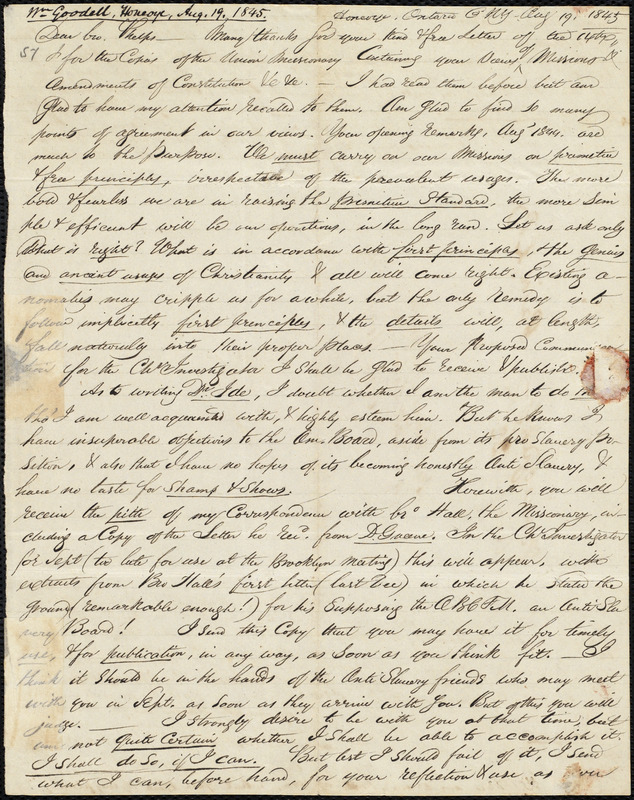 Wm Goodell, Honeoye, Aug. 19. 1845.
Honeoye, Ontario Co NY Aug 19, 1845
Dear bro. Phelps Many thanks for your kind & free Letter of the 14th
57
& for the Copies of the Union Missionary Containing your Views of Missions &c
Amendments of Constitution &c &c. — I had read them before but am
Glad to have my attention recalled to them. Am glad to find so many
points of agreement in our views. Your opening remarks, Aug 1844. are
much to the Purpose. We must carry on our Missions on primitive
& free principles, irrespective of the prevalent usages. The more
bold & fearless we are in raising the Primitive Standard, the more Sim
ple & efficient will be our operations, in the long run. Let us ask only
What is right? What is in accordance with first principles, & the genius
and ancient usages of Christianity & all will come right. Existing a-
nomalies may cripple us for a while, but the only remedy is to
follow implicitly first principles, & the details will, at length,
fall naturally into their proper places. — Your Proposed Communica
for the Chn Investigator I shall be glad to receive & publish.
As to writing Dr. Ide, I doubt whether I am the man to do
tho' I am well acquainted with, & highly esteem him. But he knows I
have insuperable objections to the Am. Board, aside from its pro Slavery Po-
sition, & also that I have no hopes of its becoming honestly Anti Slavery, &
have no taste for Shams & Shows. Herewith, you will
receive the pith of my Correspondence with bro Hall, the Missionary, in-
cluding a Copy of the Letter he recd. from D. Greene. In the Chn Investigator
for Sept (too late for use at the Brooklyn meeting) this will appear, with
extracts from Bro Halls first letter (last Dec) in which he stated the
ground (remarkable enough!) for his Supposing the A.B.C.F.M. an Anti Sla
very Board! I send this Copy that you may have it for timely
use, & for publication, in any way, as soon as you think fit. — I
think it should be in the hands of the Anti Slavery friends who may meet
with you in Sept. as soon as they arrive with you. But of this you will
judge. — I strongly desire to be with you at that time, but
am not quite certain whether I shall be able to accomplish it.
I shall do so, if I can. But lest I should fail of it, I send
what I can, before hand, for your reflection & use as you